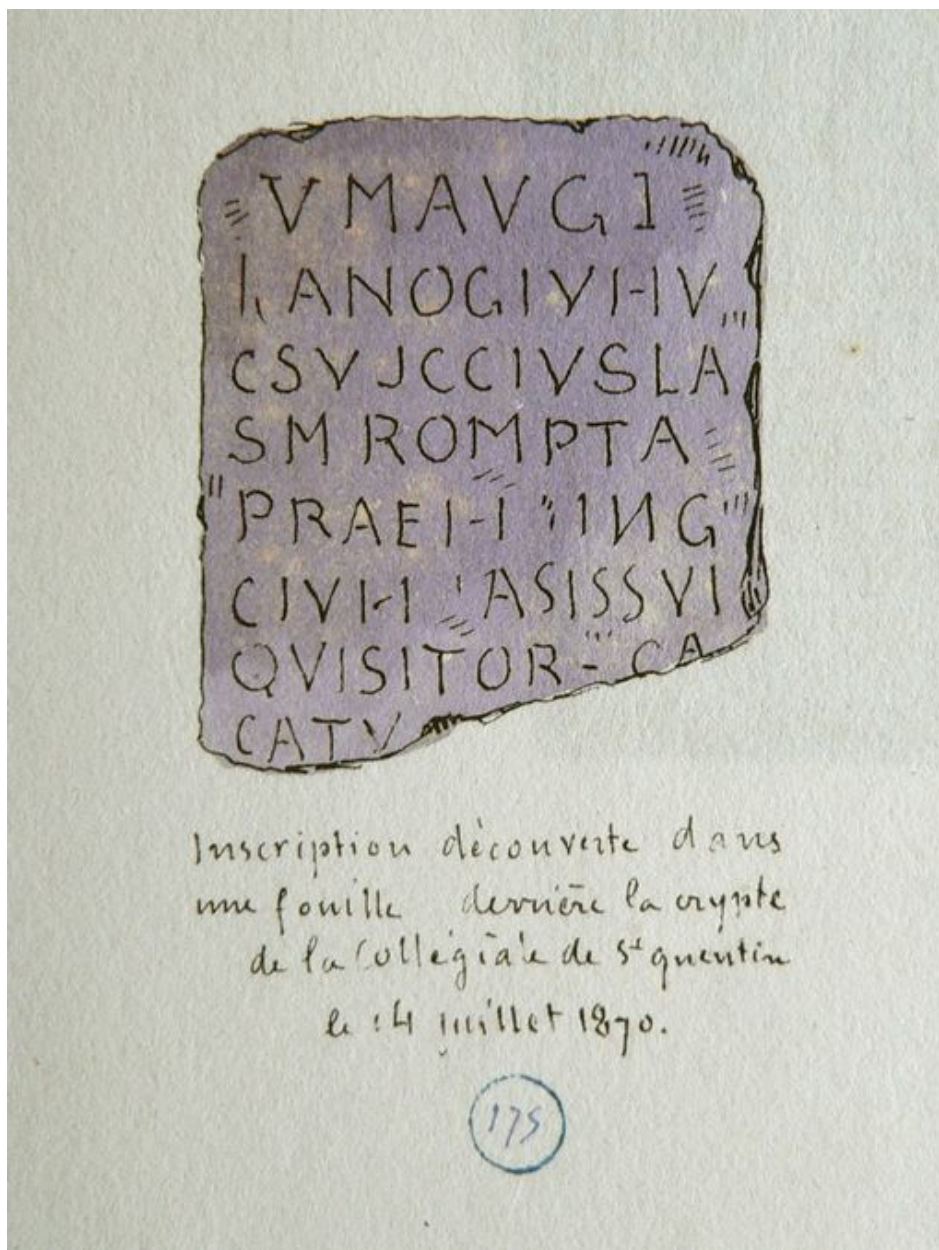 VMAVGI
ANOGIVHV
CSVJCCIVSLA
SM ROMPTA
PRAEI-I IING
CIVI-I ASISSVI
QVISITOR - CA
CATV
Inscription découverte dans
une fouille derrière la crypte
de la Collégiale de St quentin
le 14 juillet 1870.
175